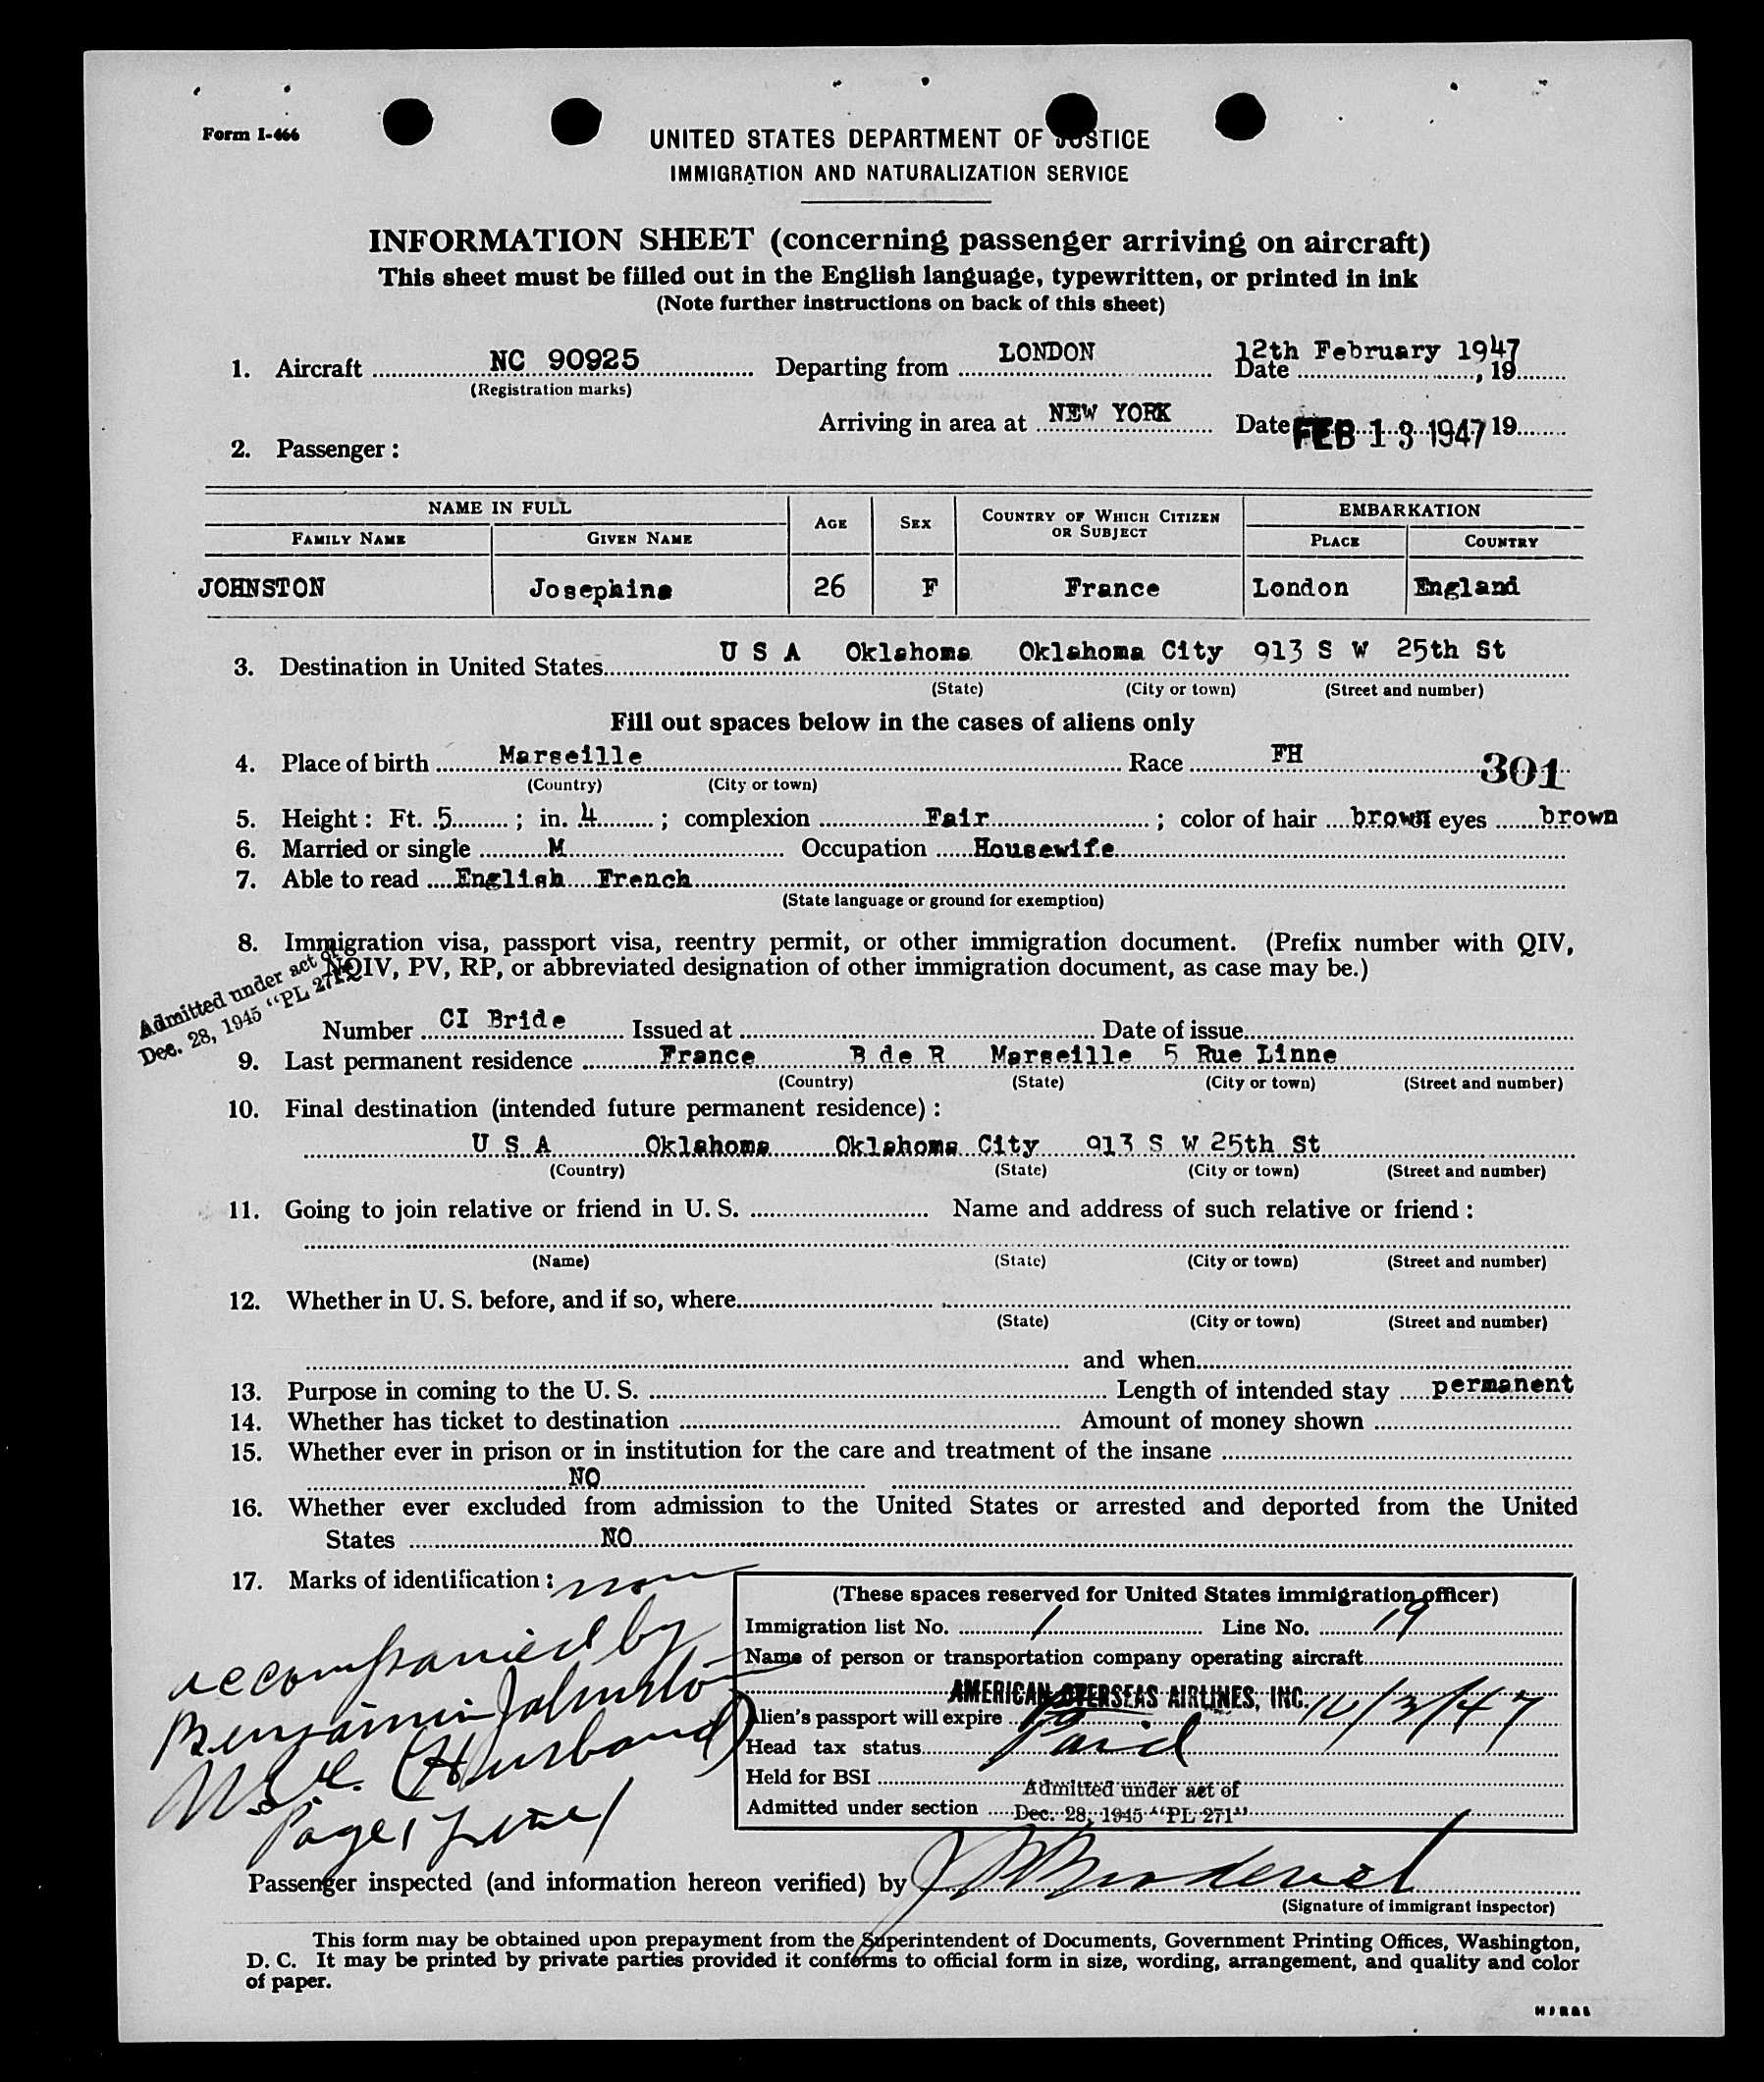 Form I-466
UNITED STATES DEPARTMENT OF JUSTICE
IMMIGRATION AND NATURALIZATION SERVICE
INFORMATION SHEET (concerning passenger arriving on aircraft)
This sheet must be filled out in the English language, typewritten, or printed in ink
(Note further instructions on back of this sheet)
1. Aircraft NC 90925 Departing from LONDON Date 12th February 1947, 19
(Registration marks)
Arriving in area at NEW YORK Date FEB 13 1947 19
2. Passenger:
NAME IN FULL AGE SEX COUNTRY OF WHICH CITIZEN OR SUBJECT EMBARKATION
FAMILY NAME GIVEN NAME PLACE COUNTRY
JOHNSTON Josephine 26 F France London England
3. Destination in United States U S A Oklahoma Oklahoma City 913 S W 25th St
(State) (City or town) (Street and number)
Fill out spaces below in the cases of aliens only
4. Place of birth Marseille Race FH 301
(Country) (City or town)
5. Height: Ft. 5; in. 4; complexion Fair; color of hair brown eyes brown
6. Married or single M Occupation Housewife
7. Able to read English French
(State language or ground for exemption)
8. Immigration visa, passport visa, reentry permit, or other immigration document. (Prefix number with QIV,
NQIV, PV, RP, or abbreviated designation of other immigration document, as case may be.)
Admitted under act of
Dec. 28, 1945 "PL 271"
Number CI Bride Issued at Date of issue
9. Last permanent residence France B de R Marseille 5 Rue Linne
(Country) (State) (City or town) (Street and number)
10. Final destination (intended future permanent residence):
U S A Oklahoma Oklahoma City 913 S W 25th St
(Country) (State) (City or town) (Street and number)
11. Going to join relative or friend in U. S. Name and address of such relative or friend:
(Name) (State) (City or town) (Street and number)
12. Whether in U. S. before, and if so, where
(State) (City or town) (Street and number)
and when
13. Purpose in coming to the U. S. Length of intended stay permanent
14. Whether has ticket to destination Amount of money shown
15. Whether ever in prison or in institution for the care and treatment of the insane
NO
16. Whether ever excluded from admission to the United States or arrested and deported from the United
States NO
17. Marks of identification:
accompanied by
Benjamin Johnston
(Husband)
Page 1 Line 1
(These spaces reserved for United States immigration officer)
Immigration list No. 1 Line No. 19
Name of person or transportation company operating aircraft
AMERICAN OVERSEAS AIRLINES, INC.
Alien's passport will expire 12/3/47
Head tax status Paid
Held for BSI
Admitted under section Admitted under act of
Dec. 28, 1945 "PL 271"
Passenger inspected (and information hereon verified) by
(Signature of immigrant inspector)
This form may be obtained upon prepayment from the Superintendent of Documents, Government Printing Offices, Washington,
D. C. It may be printed by private parties provided it conforms to official form in size, wording, arrangement, and quality and color
of paper.